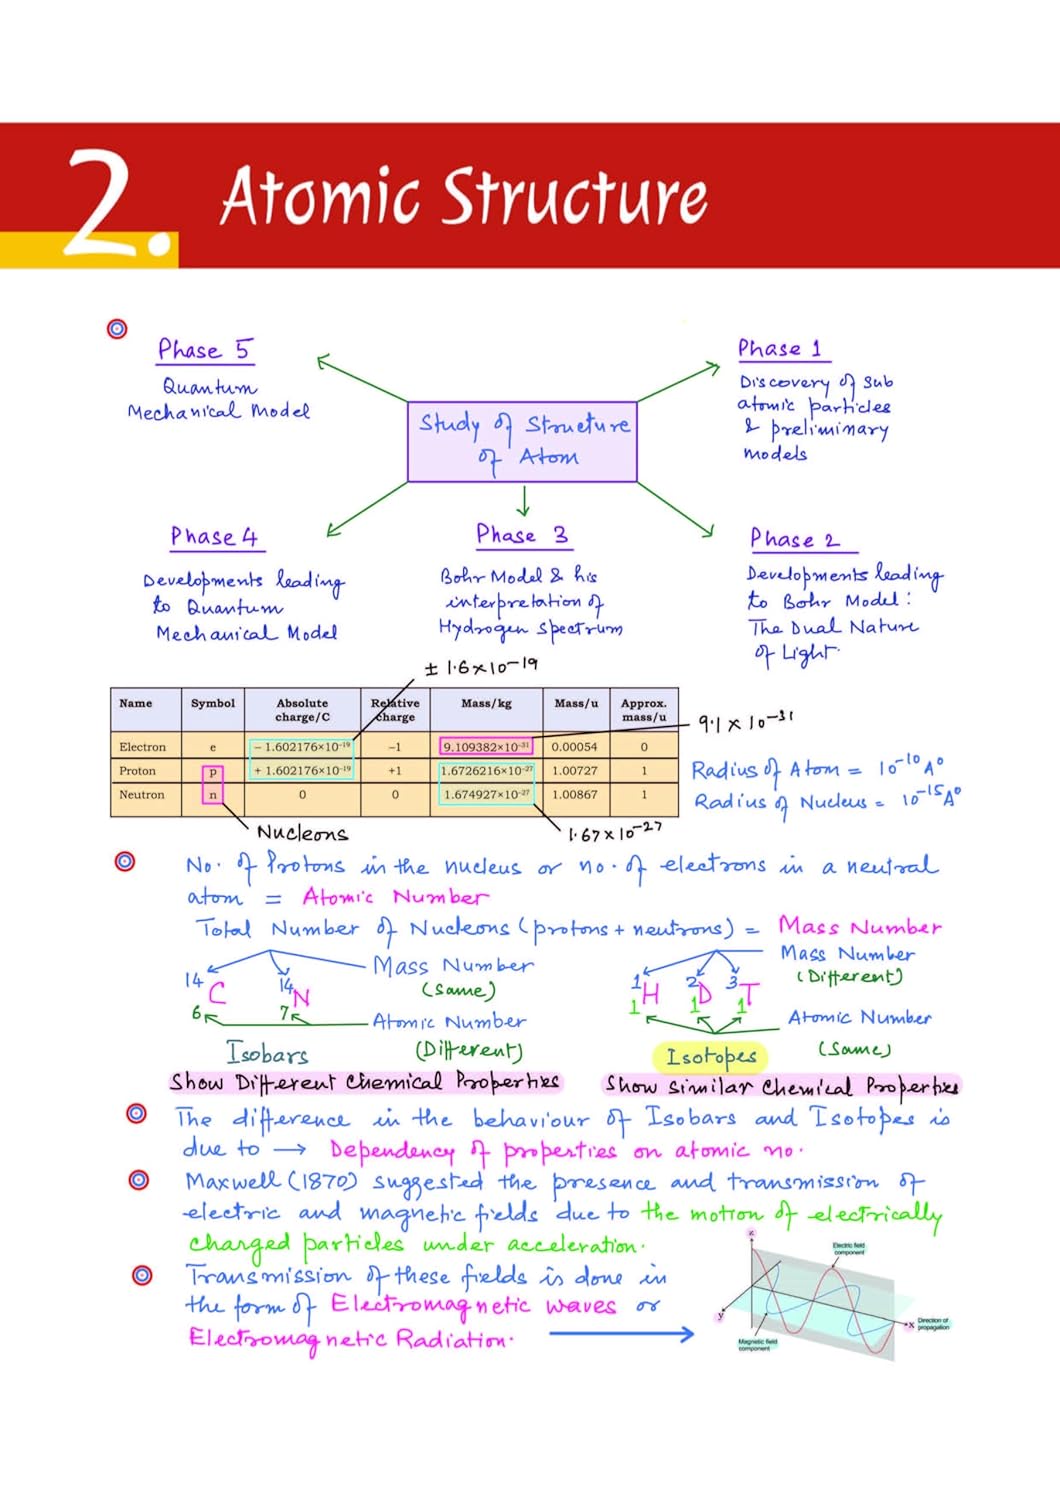 2. Atomic Structure
Phase 5
Quantum
Mechanical Model
Study of Structure
of Atom
Phase 1
Discovery of Sub
atomic particles
& preliminary
models
Phase 4
Developments leading
to Quantum
Mechanical Model
Phase 3
Bohr Model & his
interpretation of
Hydrogen Spectrum
Phase 2
Developments leading
to Bohr Model:
The Dual Nature
of Light.
± 1.6×10⁻¹⁹
Name Symbol Absolute charge/C Relative charge Mass/kg Mass/u Approx. mass/u
Electron e – 1.602176×10⁻¹⁹ –1 9.109382×10⁻³¹ 0.00054 0
Proton p + 1.602176×10⁻¹⁹ +1 1.6726216×10⁻²⁷ 1.00727 1
Neutron n 0 0 1.674927×10⁻²⁷ 1.00867 1
9.1 × 10⁻³¹
Radius of Atom = 10⁻¹⁰ A°
Radius of Nucleus = 10⁻¹⁵ A°
Nucleons
1.67 × 10⁻²⁷
No. of Protons in the nucleus or no. of electrons in a neutral
atom = Atomic Number
Total Number of Nucleons (protons + neutrons) = Mass Number
14 C 6
14 N 7
Mass Number
(Same)
Atomic Number
(Different)
Isobars
Show Different Chemical Properties
1 H 1
2 D 1
3 T 1
Mass Number
(Different)
Atomic Number
(Same)
Isotopes
Show Similar Chemical Properties
The difference in the behaviour of Isobars and Isotopes is
due to → Dependency of properties on atomic no.
Maxwell (1870) suggested the presence and transmission of
electric and magnetic fields due to the motion of electrically
charged particles under acceleration.
Transmission of these fields is done in
the form of Electromagnetic waves or
Electromagnetic Radiation.
z
Electric field
component
y
x
Direction of
propagation
Magnetic field
component